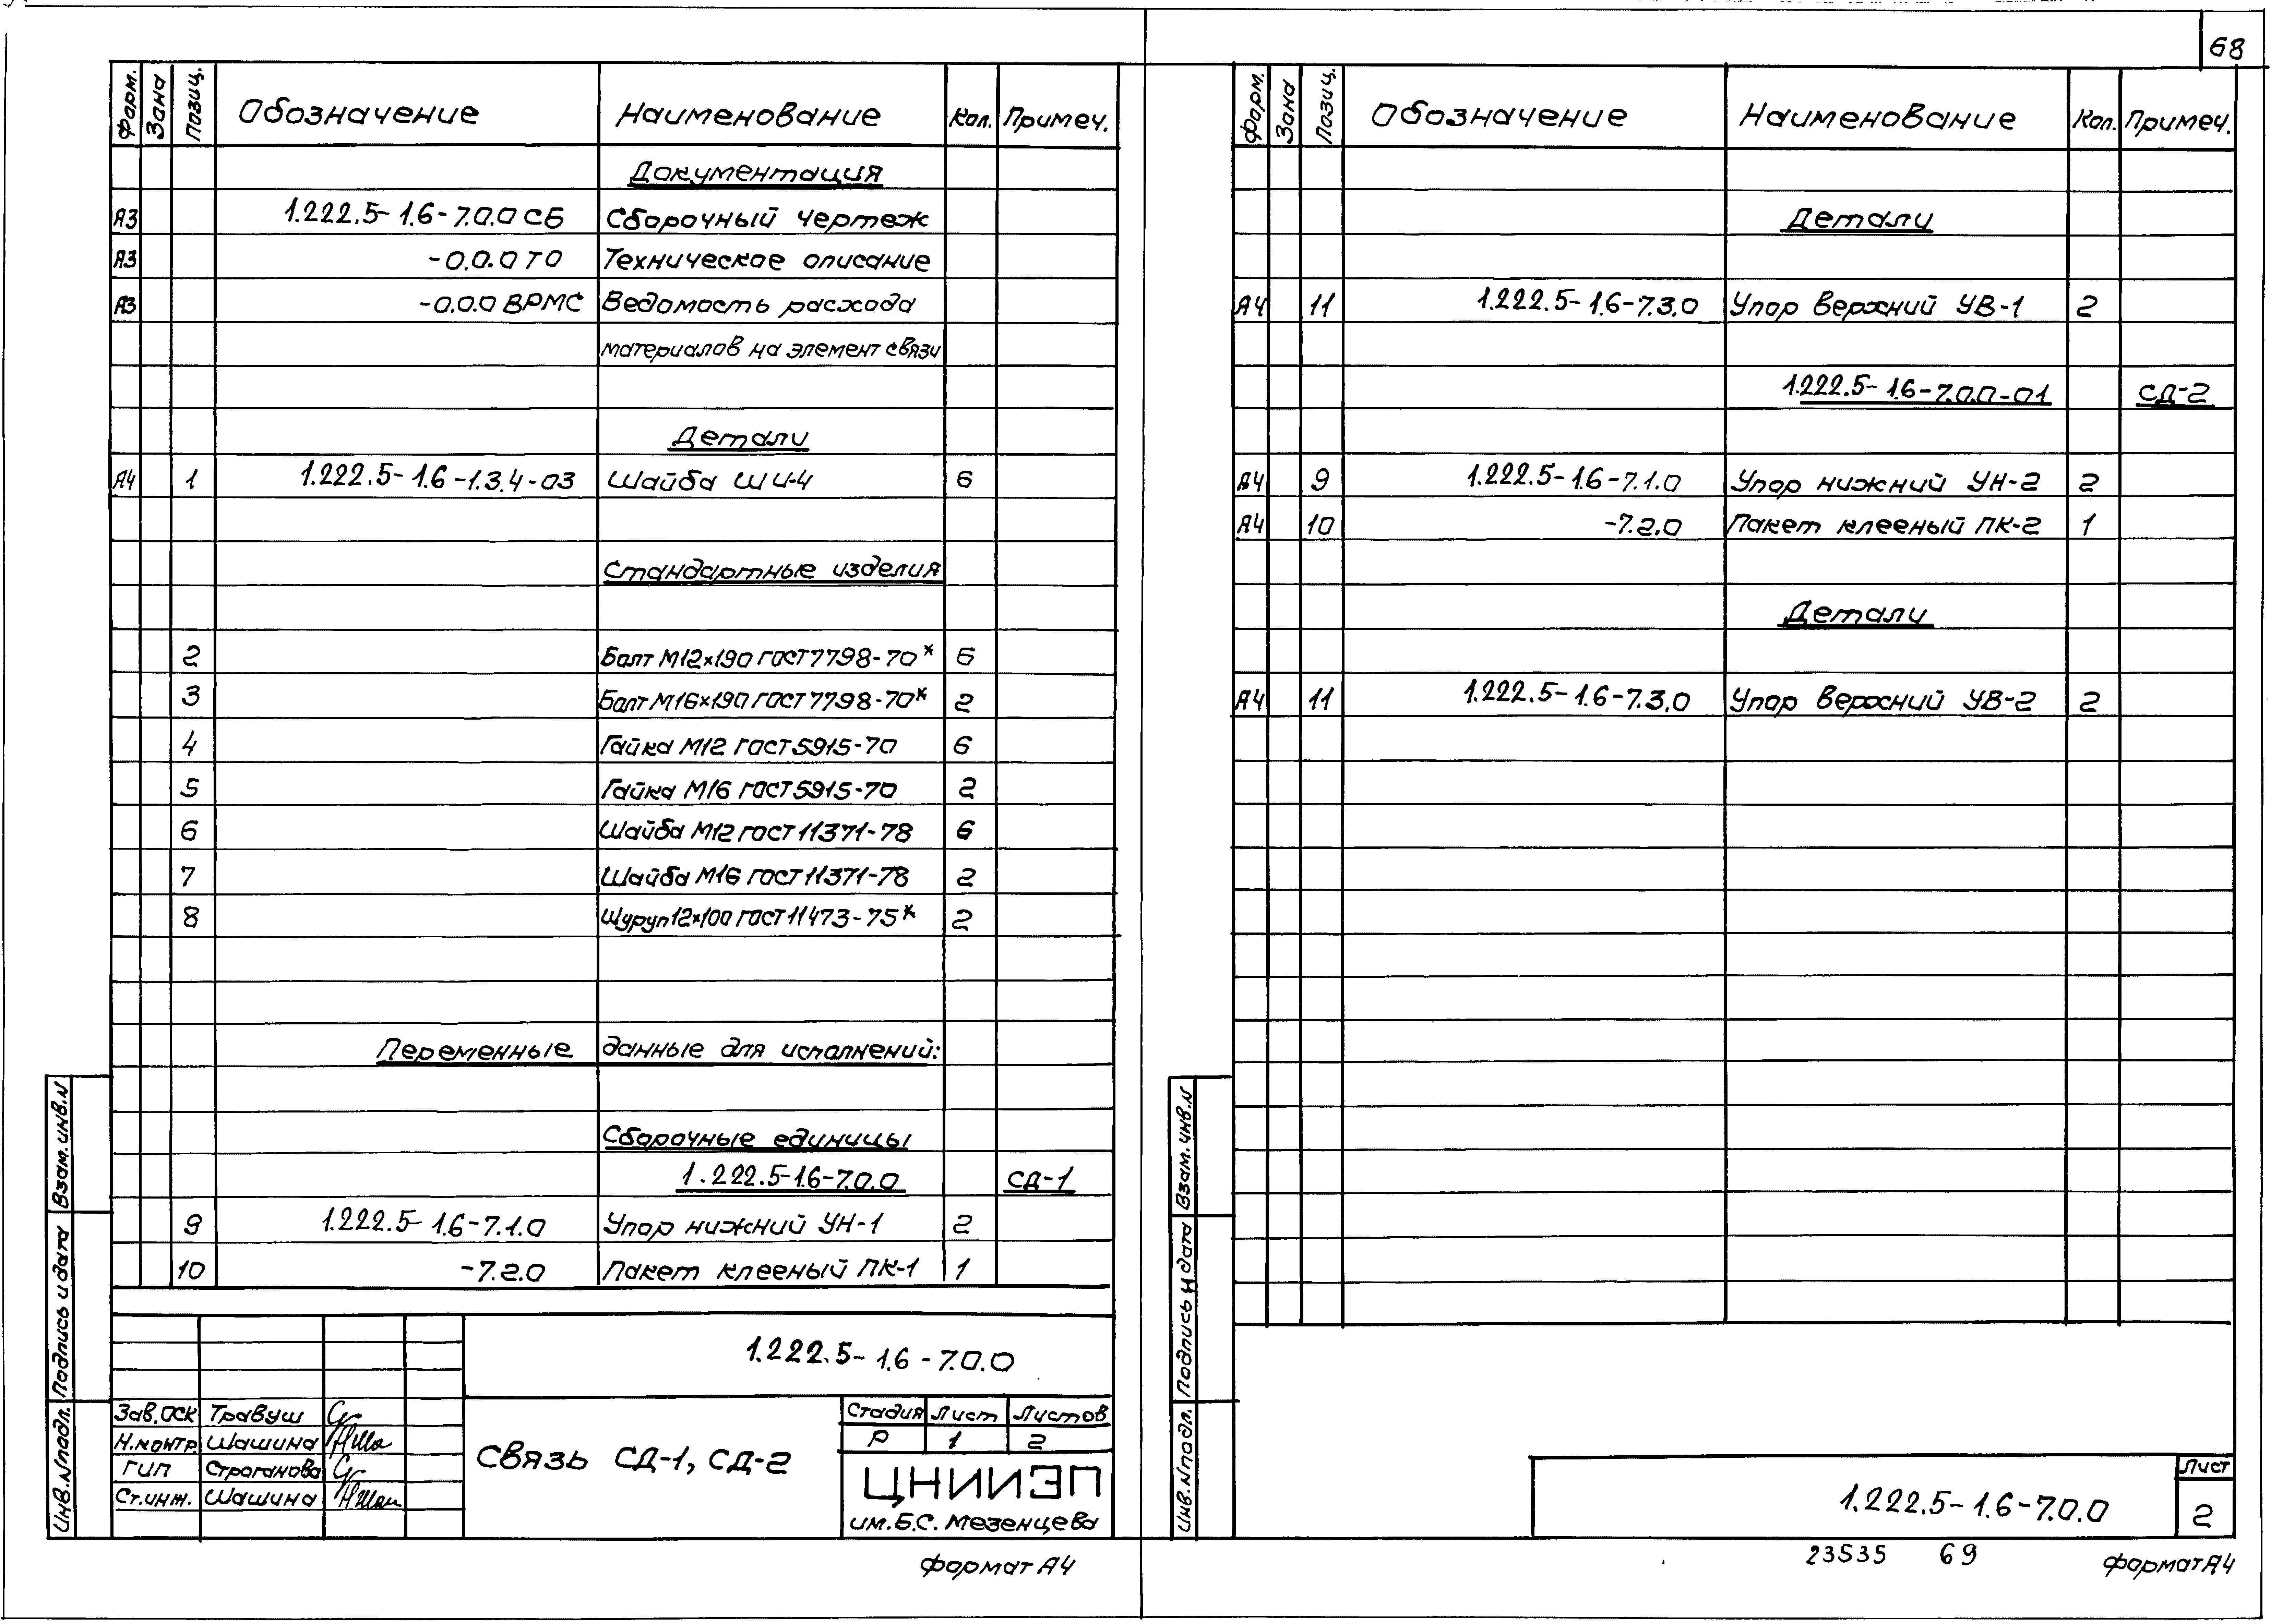 68
Форм. Зона Позиц. Обозначение Наименование Кол. Примеч.
Документация
А3 1.222.5-1.6-7.0.0 СБ Сборочный чертеж
А3 -0.0.0 ТО Техническое описание
А3 -0.0.0 ВРМС Ведомость расхода
материалов на элемент связи
Детали
А4 1 1.222.5-1.6-1.3.4-03 Шайба ШИ-4 6
Стандартные изделия
2 Болт М12×190 ГОСТ 7798-70* 6
3 Болт М16×190 ГОСТ 7798-70* 2
4 Гайка М12 ГОСТ 5915-70 6
5 Гайка М16 ГОСТ 5915-70 2
6 Шайба М12 ГОСТ 11371-78 6
7 Шайба М16 ГОСТ 11371-78 2
8 Шуруп 12×100 ГОСТ 11473-75* 2
Переменные данные для исполнений:
Сборочные единицы
1.222.5-1.6-7.0.0 СД-1
9 1.222.5-1.6-7.1.0 Упор нижний УН-1 2
10 -7.2.0 Пакет клееный ПК-1 1
1.222.5-1.6-7.0.0
Зав. ОСК Травуш
Н.контр. Шашина
ГИП Строганова
Ст.инж. Шашина
Связь СД-1, СД-2
Стадия Лист Листов
Р 1 2
ЦНИИЭП
им. Б.С. Мезенцева
Инв.N подл. Подпись и дата Взам.инв.N
Формат А4
Форм. Зона Позиц. Обозначение Наименование Кол. Примеч.
Детали
А4 11 1.222.5-1.6-7.3.0 Упор верхний УВ-1 2
1.222.5-1.6-7.0.0-01 СД-2
А4 9 1.222.5-1.6-7.1.0 Упор нижний УН-2 2
А4 10 -7.2.0 Пакет клееный ПК-2 1
Детали
А4 11 1.222.5-1.6-7.3.0 Упор верхний УВ-2 2
Инв.N подл. Подпись и дата Взам.инв.N
1.222.5-1.6-7.0.0
Лист
2
23535 69
Формат А4